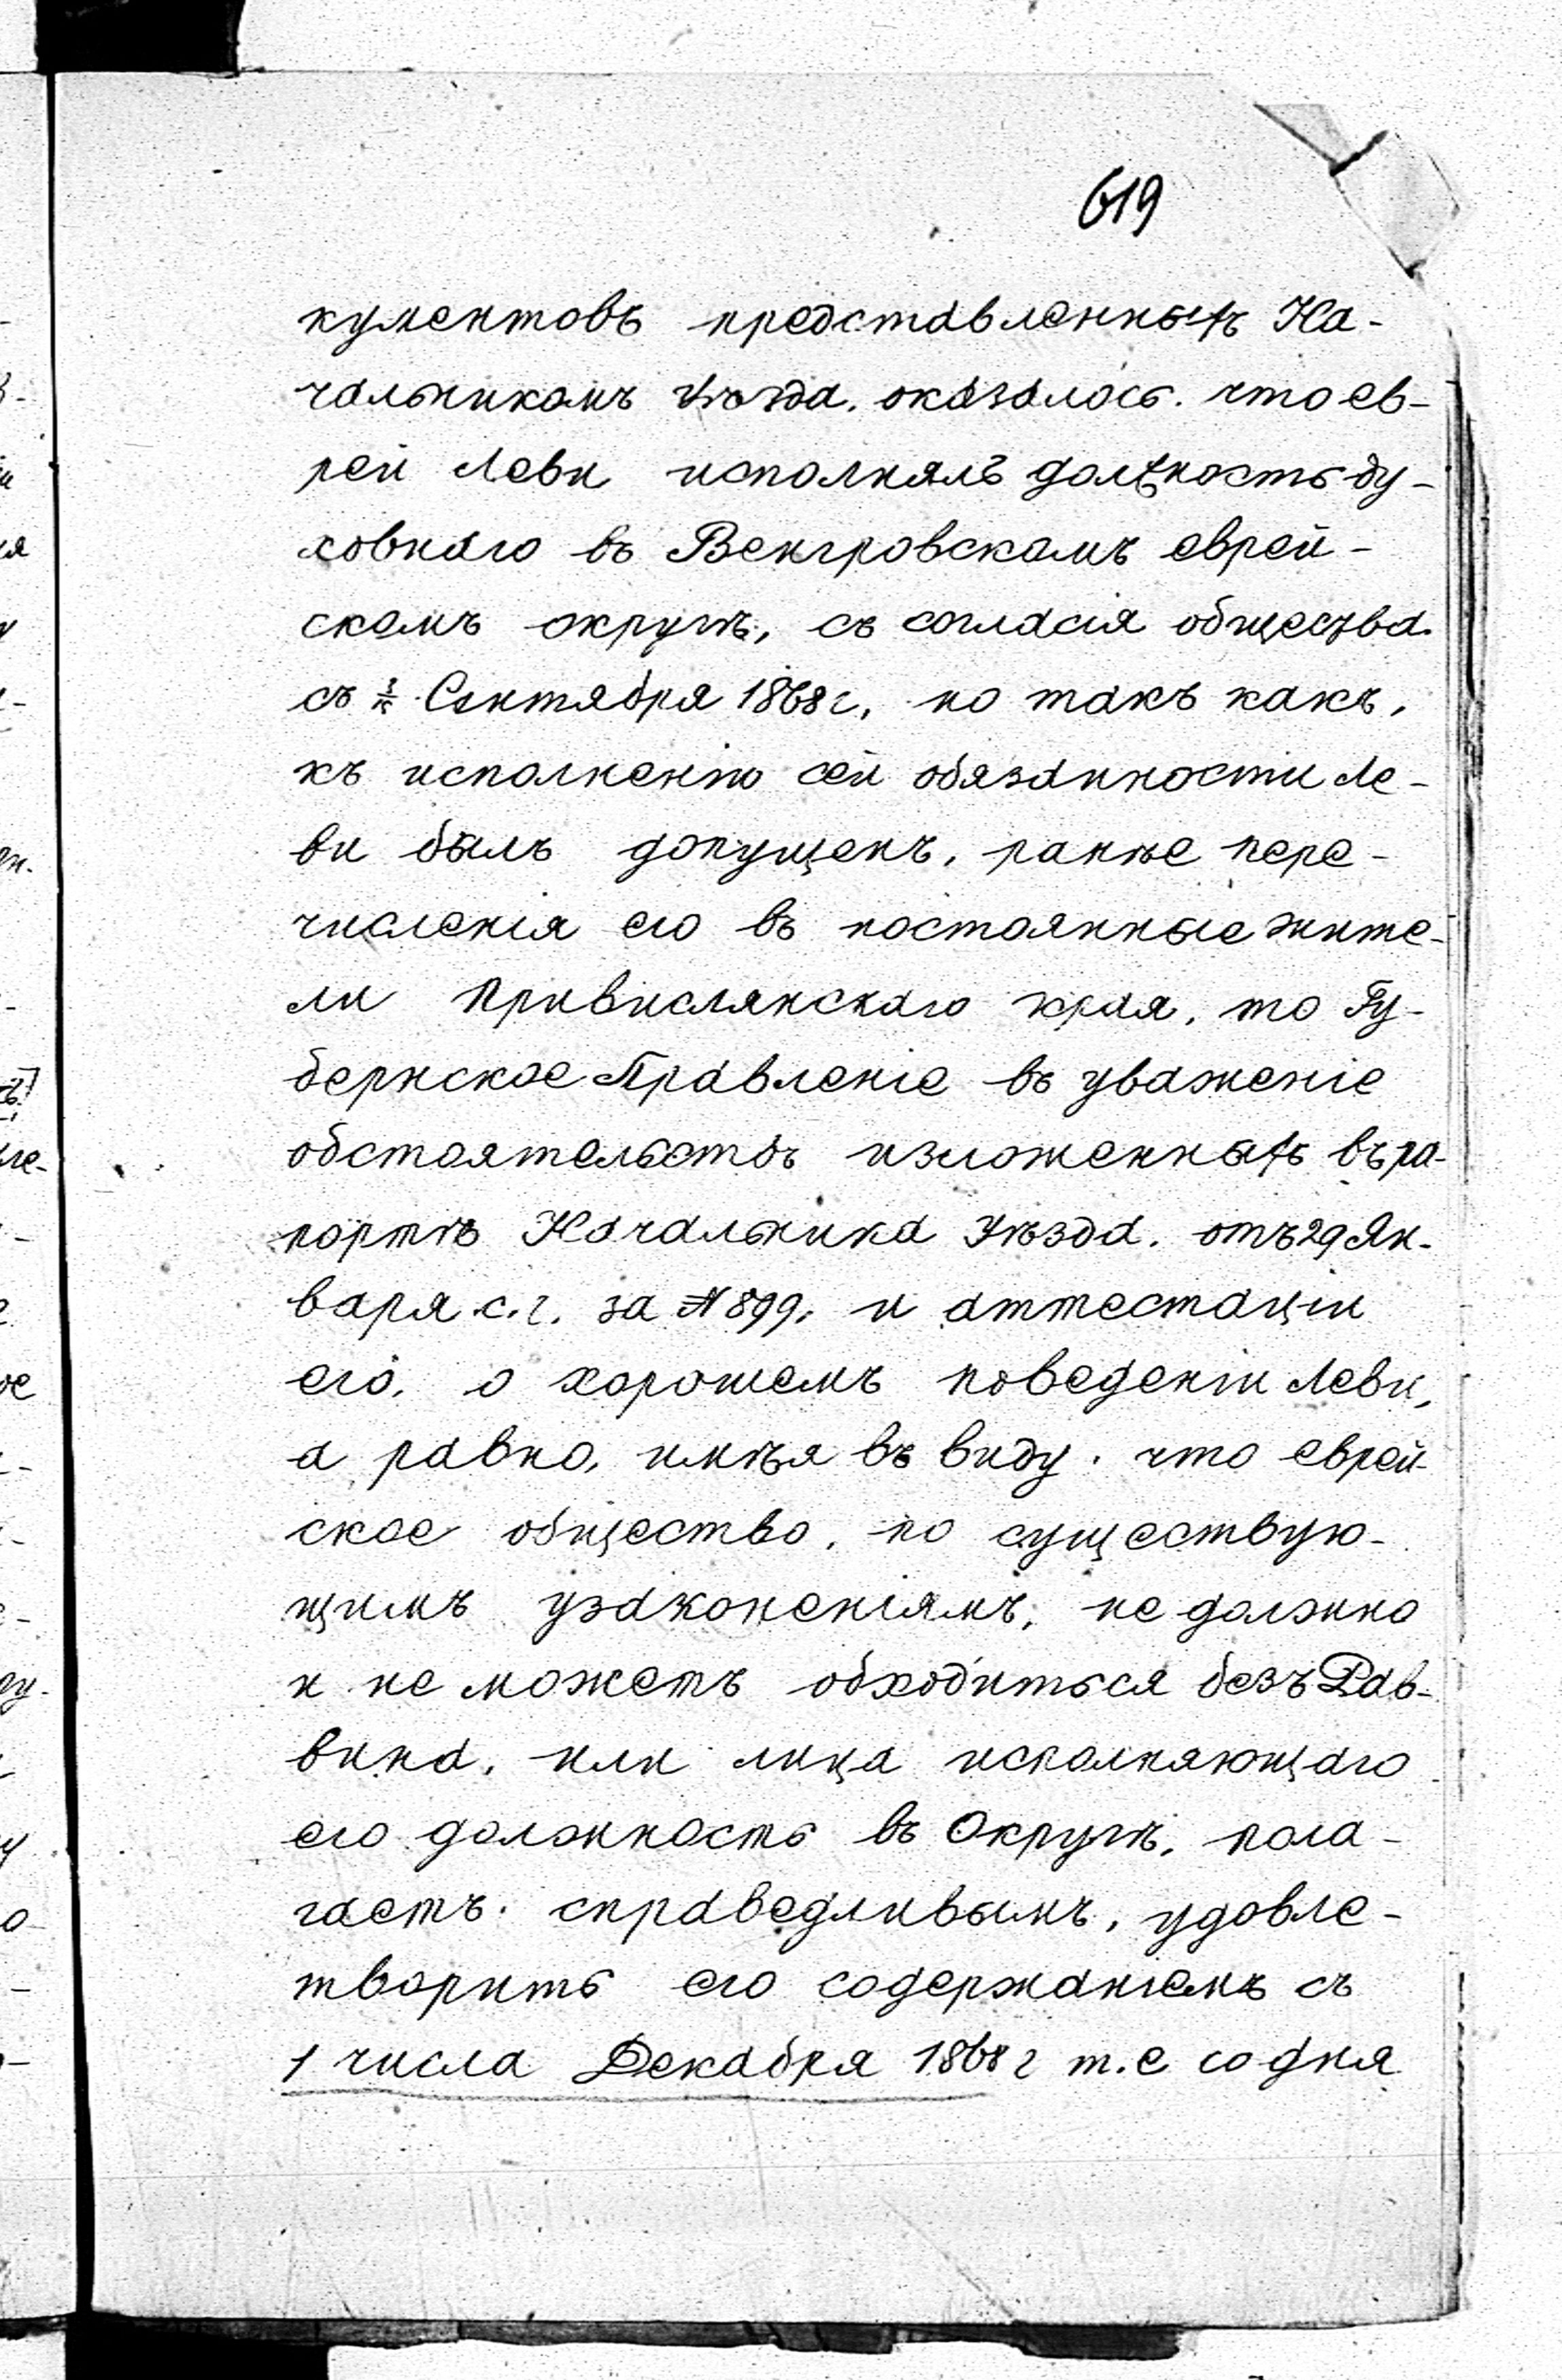 619
кументовъ представленныхъ На-
чальникомъ Уѣзда. оказалось. что ев-
рей Леви исполнялъ должность ду-
ховнаго въ Венгровскомъ еврей-
скомъ округѣ, съ согласія общества.
съ Сентября 1868 г, но такъ какъ,
къ исполненію сей обязанности Ле-
ви былъ допущенъ, ранѣе пере-
численія его въ постоянные жите-
ли Привислянскаго края, то Гу-
бернское Правленіе въ уваженіе
обстоятельствъ изложенныхъ въ ра-
портѣ Начальника Уѣзда. отъ 29 Ян-
варя с. г. за № 899. и аттестаціи
его, о хорошемъ поведеніи Леви,
а равно, имѣя въ виду. что еврей-
ское общество, по существую-
щимъ узаконеніямъ, не должно
и не можетъ обходиться безъ Рав-
вина, или лица исполняющаго
его должность въ Округѣ, пола-
гаетъ. справедливымъ, удовле-
творить его содержаніемъ съ
1 числа Декабря 1868 г т. е со дня